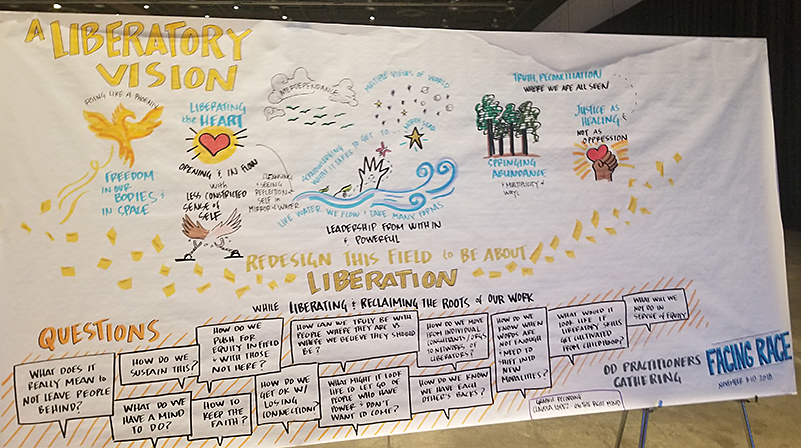 A LIBERATORY
VISION
LIKE A PHOENIX
FREEDOM
IN OUR
BODIES &
IN SPACE
LIBERATING
the HEART
OPENING & IN FLOW
with
LESS CONSTRICTED
SENSE of
SELF
INTERDEPENDANCE
CLEANSING
& SEEING
REFLECTION of
SELF IN
MIRROR of WATER
MULTIPLE VIEWS OF WORLD
NORTH STAR
ACKNOWLEDGING
WHAT IT TAKES TO GET TO
LIKE WATER WE FLOW & TAKE MANY FORMS
LEADERSHIP FROM WITHIN
& POWERFUL
TRUTH, RECONCILIATION
WHERE WE ARE ALL SEEN
SPRINGING
ABUNDANCE
& MULTIPLICITY of
WAYS
JUSTICE AS
HEALING
NOT AS
OPPRESSION
REDESIGN THIS FIELD to BE ABOUT
LIBERATION
WHILE LIBERATING & RECLAIMING THE ROOTS OF OUR WORK
QUESTIONS
WHAT DOES IT
REALLY MEAN to
NOT LEAVE PEOPLE
BEHIND?
HOW DO WE
SUSTAIN THIS?
WHAT DO WE
HAVE A MIND
TO DO?
HOW DO WE
PUSH FOR
EQUITY INVITED
& WITH THOSE
NOT HERE?
HOW TO
KEEP THE
FAITH?
HOW CAN WE TRULY BE WITH
PEOPLE WHERE THEY ARE VS
WHERE WE BELIEVE THEY SHOULD
BE?
HOW DO WE
GET OK W/
LOSING
CONNECTION?
WHAT MIGHT IT LOOK
LIKE TO LET GO OF
PEOPLE WHO HAVE
POWER & DON'T
WANT TO COME?
HOW DO WE MOVE
FROM INDIVIDUAL
CONSULTANTS/ORGS
TO NETWORKS OF
LIBERATORS?
HOW DO WE KNOW
WE HAVE EACH
OTHER'S BACKS?
HOW DO WE
KNOW WHEN
WORDS ARE
NOT ENOUGH
& MOVE TO
SHIFT INTO
NEW
MODALITIES?
WHAT WOULD IT
LOOK LIKE IF
LIBERATORY SKILLS
GET CULTIVATED
FROM CHILDHOOD?
WHAT WILL WE
NOT DO IN
SERVICE of EQUITY
OD PRACTITIONERS
GATHERING
FACING RACE
NOVEMBER 2018
GRAPHIC RECORDING
CLAUDIA LOPEZ - ON THE RIGHT MIND